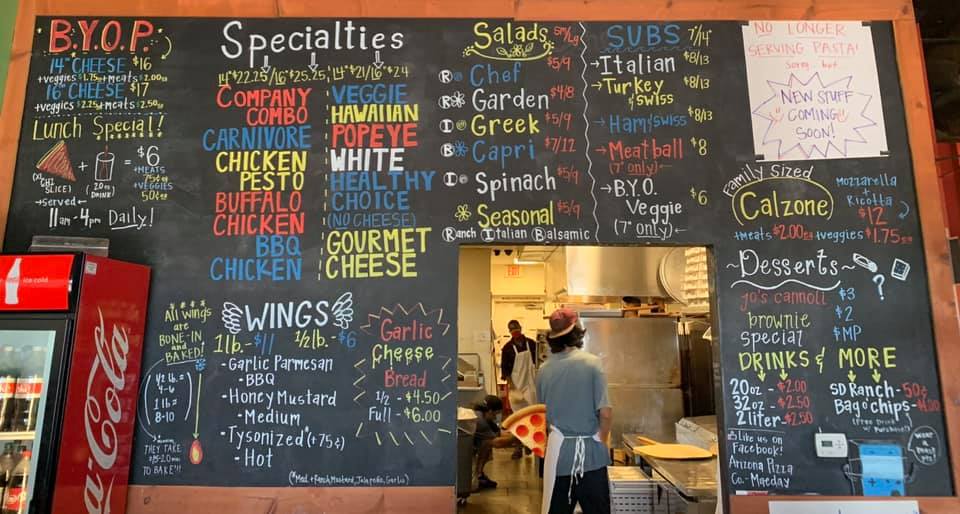 B.Y.O.P.
14" CHEESE $16
+veggies $1.75 +meats $2.00ea
16" CHEESE $17
+veggies $2.25 +meats $2.50ea
Lunch Special!
SLICE) + (20oz DRINK) = $6
+MEATS 75¢ea
+VEGGIES 50¢ea
→served←
11am - 4pm Daily!
Specialties
14" $22.25/16" $25.25
14" $21/16" $24
COMPANY
COMBO
CARNIVORE
CHICKEN
PESTO
BUFFALO
CHICKEN
BBQ
CHICKEN
VEGGIE
HAWAIIAN
POPEYE
WHITE
HEALTHY
CHOICE
(NO CHEESE)
GOURMET
CHEESE
Salads sm/lg
Ⓡ Chef $5/9
Ⓡ Garden $4/8
Ⓘ Greek $5/9
Ⓑ Capri $7/12
Ⓘ Spinach $5/9
Seasonal $5/9
Ⓡanch Ⓘtalian Ⓑalsamic
SUBS 7/14"
→Italian $8/13
→Turkey & SWISS $8/13
→Ham & SWISS $8/13
→Meatball $8
(7" only)←
→B.Y.O. Veggie $6
(7" only)←
NO LONGER
SERVING PASTA!
Sorry. but
NEW STUFF
COMING
SOON!
Family Sized
Calzone
Mozzarella
+
Ricotta
$12
+meats $2.00ea +veggies $1.75ea
~Desserts~
yo's cannoli $3
brownie $2
special $MP
DRINKS & MORE
20oz - $2.00
32oz - $2.50
2liter - $2.50
SD Ranch - 50¢
Bag o' chips - $1.00
(Free Drink w/ Purchase!)
Like us on
Facebook!
Arizona Pizza
Co. - Maeday
All wings
are
BONE-IN
and
BAKED!
1/2 lb. =
4-6
1 lb =
8-10
THEY TAKE
TO BAKE!!!
WINGS
1 lb. - $11 1/2 lb. - $6
-Garlic Parmesan
-BBQ
-Honey Mustard
-Medium
-Tysonized* (+75¢)
-Hot
(*Med + Ranch, Mustard, Jalapeño, Garlic)
Garlic
Cheese
Bread
1/2 - $4.50
Full - $6.00
EXIT
ice cold
Coca-Cola